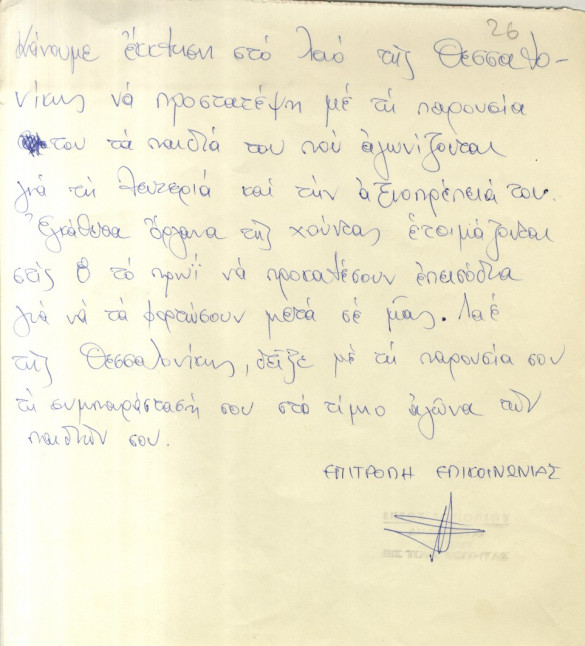 26
Κάνουμε ἔκκληση στό λαό τῆς Θεσσαλο-
νίκης νά προστατέψη μέ τή παρουσία
του τά παιδιά του πού ἀγωνίζονται
γιά τή λευτεριά καί τήν ἀξιοπρέπειά του.
Ἐγκάθετα ὄργανα τῆς χούντας ἑτοιμάζονται
στίς 8 τό πρωΐ νά προκαλέσουν ἐπεισόδια
γιά νά τά φορτώσουν μετά σέ μᾶς. Λαέ
τῆς Θεσσαλονίκης, δεῖξε μέ τή παρουσία σου
τή συμπαράστασή σου στό τίμιο ἀγώνα τῶν
παιδιῶν σου.
ΕΠΙΤΡΟΠΗ ΕΠΙΚΟΙΝΩΝΙΑΣ